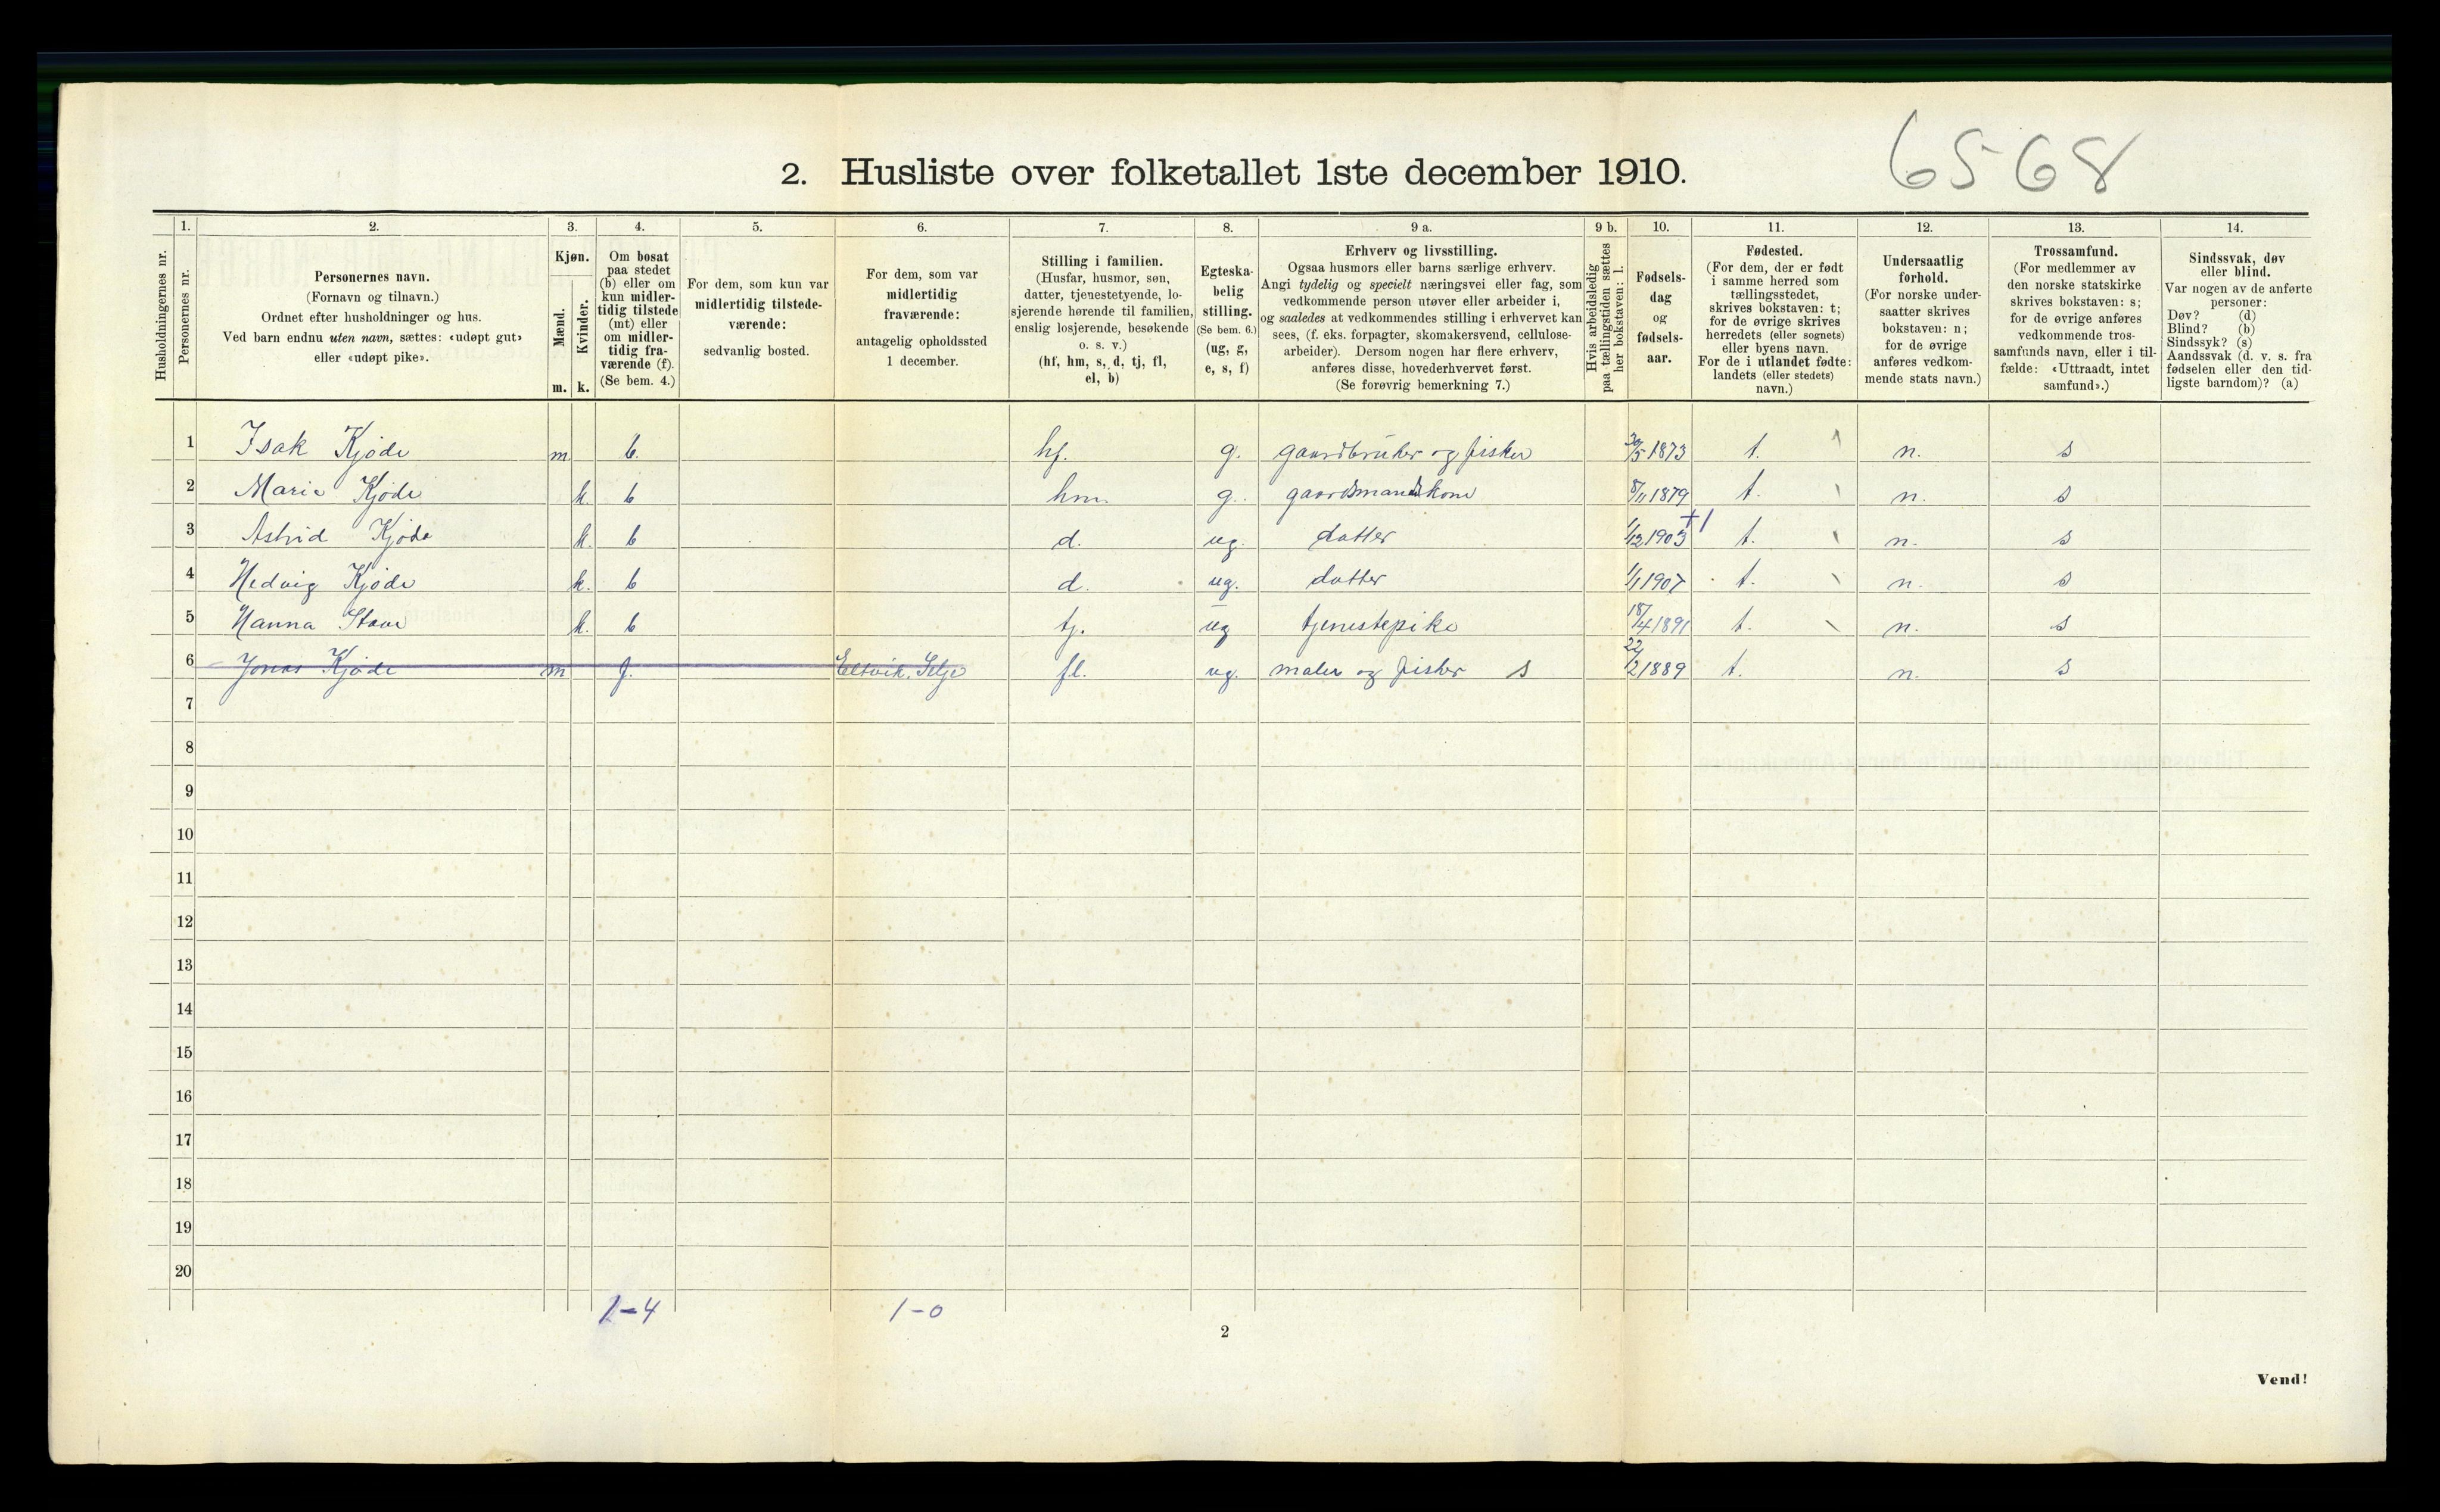 6568
2. Husliste over folketallet 1ste december 1910.
Husholdningernes nr.
1. Personernes nr.
2. Personernes navn. (Fornavn og tilnavn.) Ordnet efter husholdninger og hus. Ved barn endnu uten navn, sættes: «udøpt gut» eller «udøpt pike».
3. Kjøn. Mænd. m. Kvinder. k.
4. Om bosat paa stedet (b) eller om kun midlertidig tilstede (mt) eller om midlertidig fraværende (f). (Se bem. 4.)
5. For dem, som kun var midlertidig tilstedeværende: sedvanlig bosted.
6. For dem, som var midlertidig fraværende: antagelig opholdssted 1 december.
7. Stilling i familien. (Husfar, husmor, søn, datter, tjenestetyende, losjerende hørende til familien, enslig losjerende, besøkende o. s. v.) (hf, hm, s, d, tj, fl, el, b)
8. Egteskabelig stilling. (Se bem. 6.) (ug, g, e, s, f)
9 a. Erhverv og livsstilling. Ogsaa husmors eller barns særlige erhverv. Angi tydelig og specielt næringsvei eller fag, som vedkommende person utøver eller arbeider i, og saaledes at vedkommendes stilling i erhvervet kan sees, (f. eks. forpagter, skomakersvend, cellulosearbeider). Dersom nogen har flere erhverv, anføres disse, hovederhvervet først. (Se forøvrig bemerkning 7.)
9 b. Hvis arbeidsledig paa tællingstiden sættes her bokstaven: l.
10. Fødselsdag og fødselsaar.
11. Fødested. (For dem, der er født i samme herred som tællingsstedet, skrives bokstaven: t; for de øvrige skrives herredets (eller sognets) eller byens navn. For de i utlandet fødte: landets (eller stedets) navn.)
12. Undersaatlig forhold. (For norske undersaatter skrives bokstaven: n; for de øvrige anføres vedkommende stats navn.)
13. Trossamfund. (For medlemmer av den norske statskirke skrives bokstaven: s; for de øvrige anføres vedkommende trossamfunds navn, eller i tilfælde: «Uttraadt, intet samfund».)
14. Sindssvak, døv eller blind. Var nogen av de anførte personer: Døv? (d) Blind? (b) Sindssyk? (s) Aandssvak (d. v. s. fra fødselen eller den tidligste barndom)? (a)
1 Isak Kjøde m. b. hf. g. gaardbruker og fisker 30/5 1873 t. n. s
2 Marie Kjøde k. b hm. g. gaardmandskone 8/11 1879 t. n. s
3 Astrid Kjøde k. b d. ug. datter 1/12 1903 +1 t. n. s
4 Hedvig Kjøde k. b d. ug. datter 1/1 1907 t. n. s
5 Hanna Stave k. b tj. ug tjenestepike 18/4 1891 t. n. s
6 Jonas Kjøde m f. Eltvik, Selje fl. ug. maler og fisker s 22/2 1889 t. n. s
7
8
9
10
11
12
13
14
15
16
17
18
19
20
1-4 1-0
2
Vend!